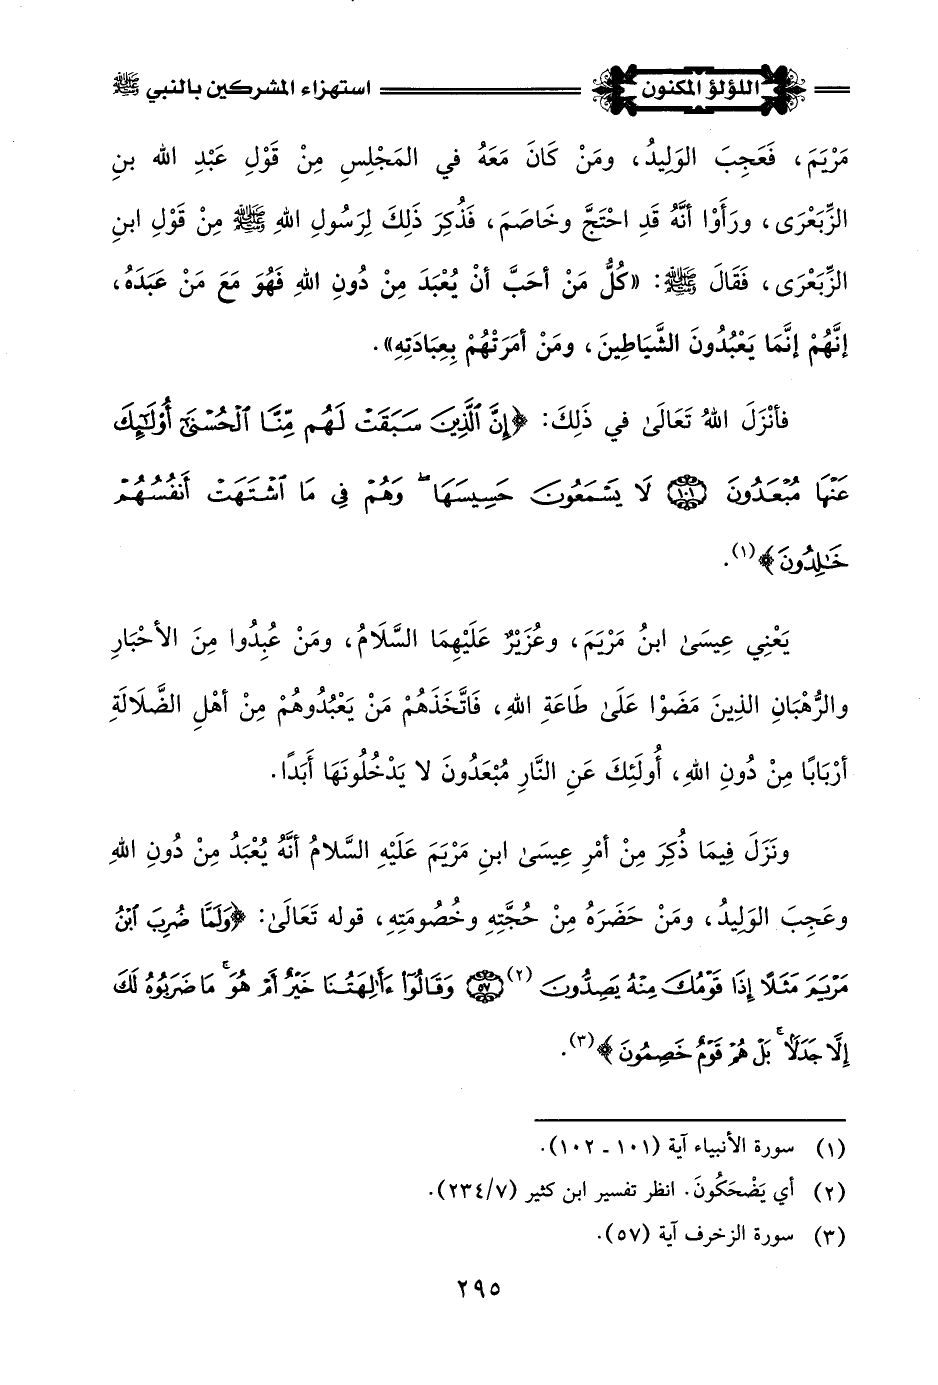 اللؤلؤ المكنون استهزاء المشركين بالنبي ﷺ
مَرْيَمَ، فَعَجِبَ الوَلِيدُ، ومَنْ كَانَ مَعَهُ في المَجْلِسِ مِنْ قَوْلِ عَبْدِ الله بنِ
الزِّبَعْرَى، ورَأَوْا أنَّهُ قَدِ احْتَجَّ وخَاصَمَ، فَذُكِرَ ذَلِكَ لِرَسُولِ اللهِ ﷺ مِنْ قَوْلِ ابنِ
الزِّبَعْرَى، فَقَالَ ﷺ: «كُلُّ مَنْ أحَبَّ أنْ يُعْبَدَ مِنْ دُونِ اللهِ فَهُوَ مَعَ مَنْ عَبَدَهُ،
إنَّهُمْ إنَّمَا يَعْبُدُونَ الشَّيَاطِينَ، ومَنْ أمَرَتْهُمْ بِعِبَادَتِهِ».
فأنْزَلَ اللهُ تَعَالَىٰ في ذَلِكَ: ﴿إِنَّ ٱلَّذِينَ سَبَقَتْ لَهُم مِّنَّا ٱلْحُسْنَىٰٓ أُوْلَٰٓئِكَ
عَنْهَا مُبْعَدُونَ ١٠١ لَا يَسْمَعُونَ حَسِيسَهَا ۖ وَهُمْ فِي مَا ٱشْتَهَتْ أَنفُسُهُمْ
خَٰلِدُونَ﴾(١).
يَعْنِي عِيسَىٰ ابنُ مَرْيَمَ، وعُزَيْرٌ عَلَيْهِمَا السَّلَامُ، ومَنْ عُبِدُوا مِنَ الأحْبَارِ
والرُّهْبَانِ الذِينَ مَضَوْا عَلَىٰ طَاعَةِ اللهِ، فَاتَّخَذَهُمْ مَنْ يَعْبُدُوهُمْ مِنْ أهْلِ الضَّلَالَةِ
أرْبَابًا مِنْ دُونِ اللهِ، أُولَئِكَ عَنِ النَّارِ مُبْعَدُونَ لا يَدْخُلُونَهَا أَبَدًا.
ونَزَلَ فِيمَا ذُكِرَ مِنْ أمْرِ عِيسَىٰ ابنِ مَرْيَمَ عَلَيْهِ السَّلَامُ أنَّهُ يُعْبَدُ مِنْ دُونِ اللهِ
وعَجِبَ الوَلِيدُ، ومَنْ حَضَرَهُ مِنْ حُجَّتِهِ وخُصُومَتِهِ، قوله تَعَالَىٰ: ﴿وَلَمَّا ضُرِبَ ٱبْنُ
مَرْيَمَ مَثَلًا إِذَا قَوْمُكَ مِنْهُ يَصِدُّونَ(٢) ٥٧ وَقَالُوٓاْ ءَأَٰلِهَتُنَا خَيْرٌ أَمْ هُوَ ۚ مَا ضَرَبُوهُ لَكَ
إِلَّا جَدَلًۢا ۚ بَلْ هُمْ قَوْمٌ خَصِمُونَ﴾(٣).
(١) سورة الأنبياء آية (١٠١ ـ ١٠٢).
(٢) أي يَضْحَكُونَ. انظر تفسير ابن كثير (٢٣٤/٧).
(٣) سورة الزخرف آية (٥٧).
٢٩٥